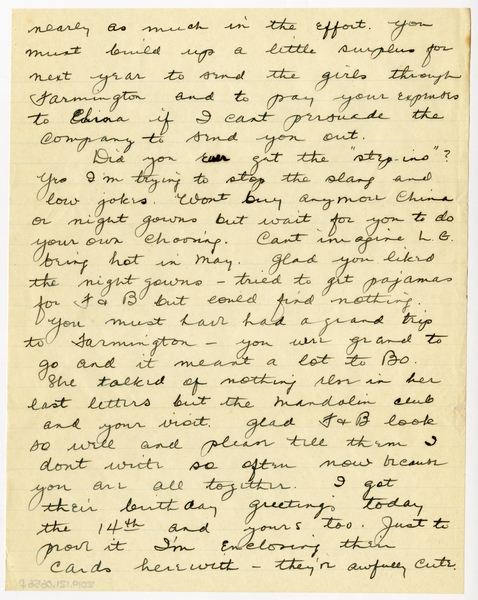 nearly as much in the effort. You
must build up a little surplus for
next year to send the girls through
Farmington and to pay your expenses
to China if I cant persuade the
company to send you out.
Did you ever get the "step-ins"?
Yes I'm trying to stop the slang and
low jokes. Wont buy anymore China
or night gowns but wait for you to do
your own choosing. Cant imagine L.G.
being hot in May. Glad you liked
the night gowns - tried to get pajamas
for F & B but could find nothing.
You must have had a grand trip
to Farmington - you were grand to
go and it meant a lot to Bo.
She talked of nothing else in her
last letters but the Mandolin club
and your visit. Glad F & B look
so well and please tell them I
dont write so often now because
you are all together. I got
their birthday greetings today
the 14th and yours too. Just to
prove it I'm enclosing their
cards herewith - they're awfully cute.